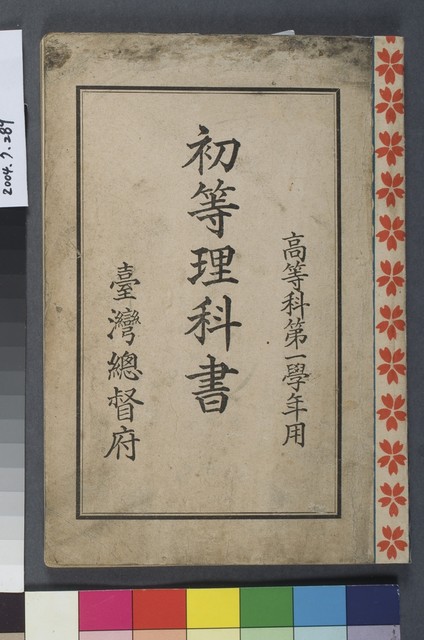 高等科第一學年用
初等理科書
臺灣總督府
2004.7.289